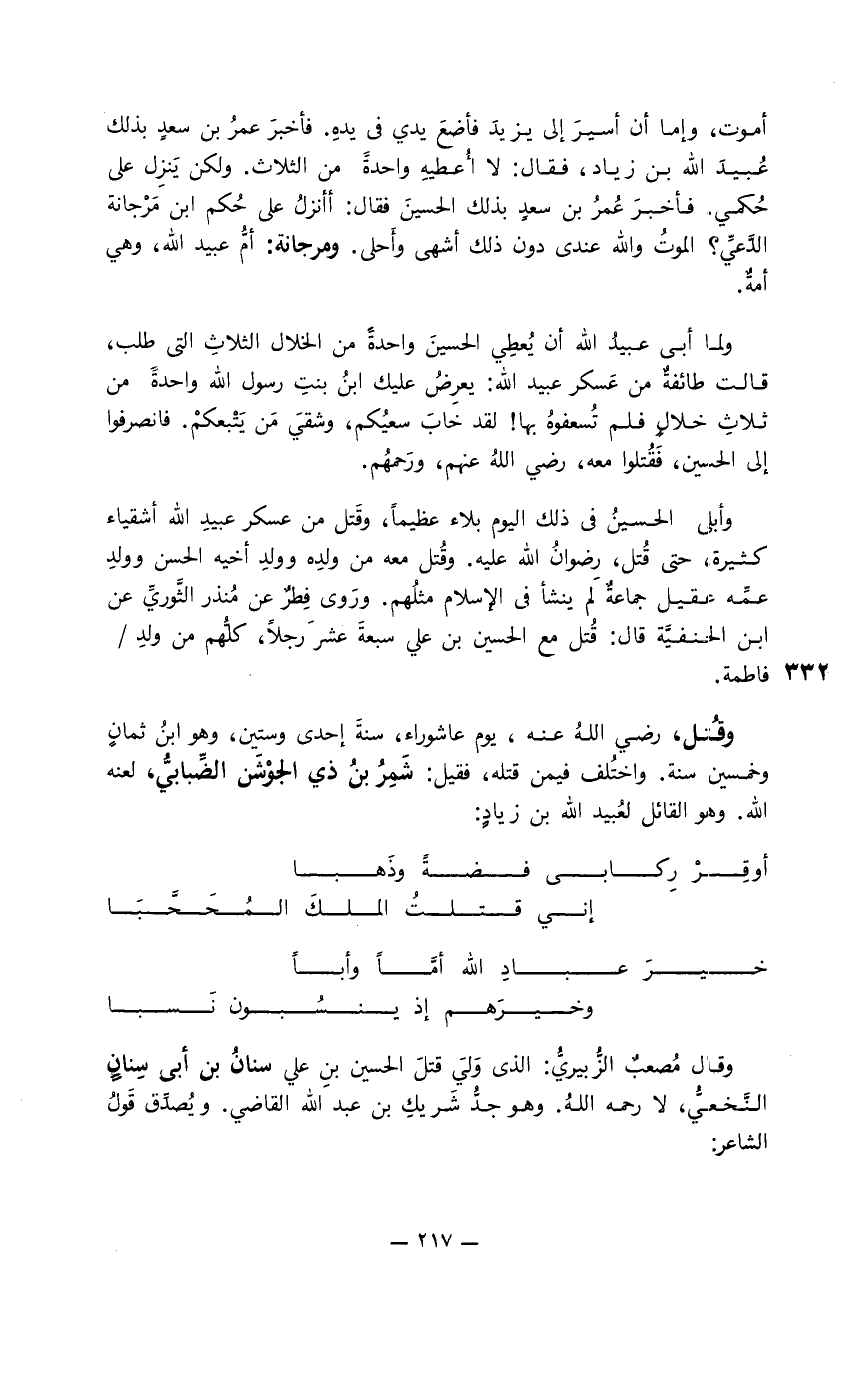 أموت، وإما أن أسيرَ إلى يزيدَ فأضعَ يدي فى يدهِ. فأخبرَ عمرُ بن سعدٍ بذلك
عُبيدَ الله بن زياد، فقال: لا أُعطيهِ واحدةً من الثلاث. ولكن يَنزِل على
حُكمي. فأخبرَ عُمرُ بن سعدٍ بذلك الحسينَ فقال: أأنزلُ على حُكم ابن مَرْجانة
الدَّعيِّ؟ الموتُ والله عندى دون ذلك أشهى وأَحلى. ومرجانة: أمُّ عبيد الله، وهي
أمةٌ.
ولما أبى عبيدُ الله أن يُعطِي الحسينَ واحدةً من الخلال الثلاثِ التى طلب،
قالت طائفةٌ من عَسكر عبيد الله: يعرِضُ عليك ابنُ بنتِ رسول الله واحدةً من
ثلاثِ خلالٍ فلم تُسعفوهُ بها! لقد خابَ سعيُكم، وشقيَ مَن يَتْبعكمْ. فانصرفوا
إلى الحسين، فَقُتلوا معه، رضي اللهُ عنهم، ورَحمهُم.
وأبلى الحسينُ فى ذلك اليوم بلاء عظيماً، وقَتل من عسكر عبيدِ الله أشقياء
كثيرة، حتى قُتل، رضوانُ الله عليه. وقُتل معه من ولدِه وولدِ أخيه الحسن وولدِ
عمِّه عقيل جماعةٌ لَم ينشأ فى الإسلام مثلُهم. ورَوى فِطرٌ عن مُنذر الثَّوريِّ عن
ابن الحنفيَّة قال: قُتل مع الحسين بن علي سبعةَ عشرَ رجلاً، كلُّهم من ولدِ /
٣٣٢ فاطمة.
وقُتل، رضي اللهُ عنه ، يوم عاشوراء، سنةَ إحدى وستين، وهو ابنُ ثمانٍ
وخمسين سنة. واختُلف فيمن قتله، فقيل: شَمِرُ بنُ ذي الجَوْشَن الضِّبابيُّ، لعنه
الله. وهو القائل لعُبيد الله بن زيادٍ:
أوقِرْ رِكابى فضةً وذَهبا
إني قتلتُ الملكَ المُحَجَّبَا
خيرَ عبادِ الله أمَّاً وأباً
وخيرَهم إذ ينسُبون نَسبا
وقال مُصعبٌ الزُّبيريُّ: الذى وَلِيَ قتلَ الحسين بنِ علي سنانُ بن أبى سِنانٍ
النَّخعيُّ، لا رحمه اللهُ. وهو جدُّ شَريكِ بن عبد الله القاضي. ويُصدِّق قَولُ
الشاعر:
— ٢١٧ —